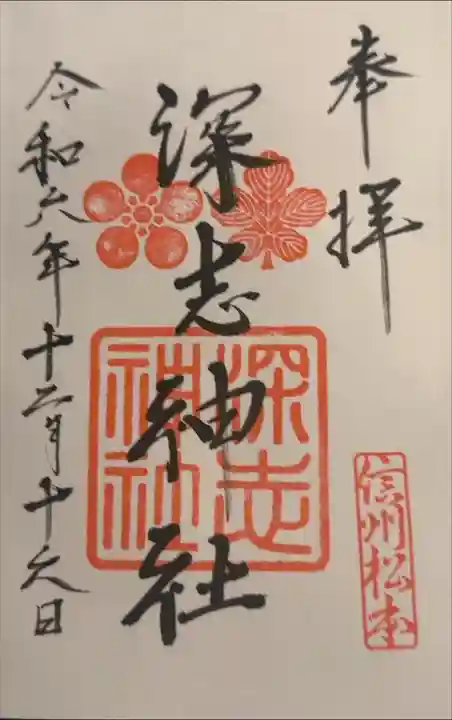 奉拝
信州松本
深志神社
深志
神社
令和六年十二月十六日